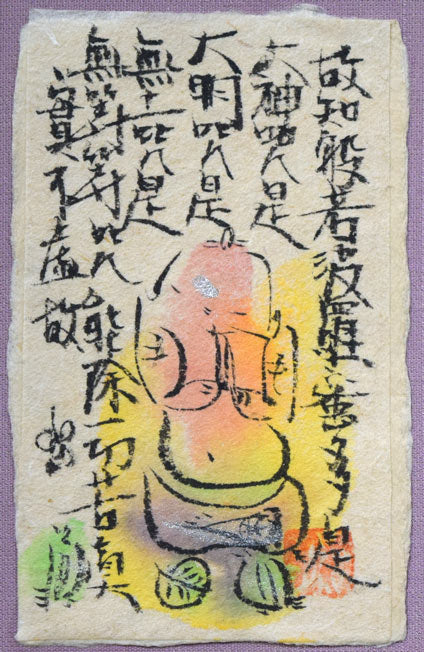 故知般若波羅蜜多是
大神呪是
大明呪是
無上呪是
無等等呪能除一切苦真
實不虚故